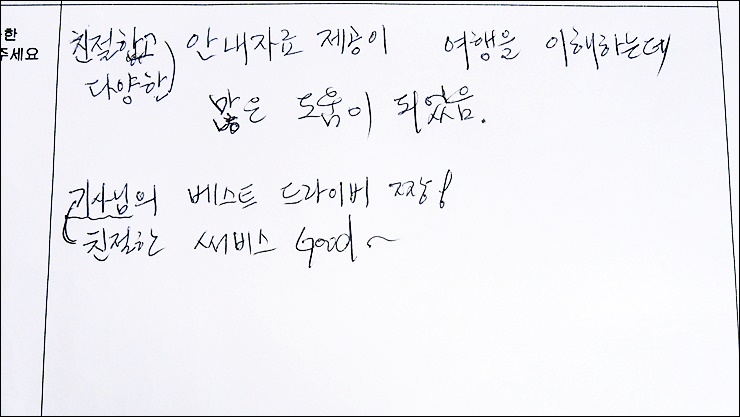 한
주세요
친절하고 안내자료 제공이 여행을 이해하는데
다양한
많은 도움이 되었음.
기사님의 베스트 드라이버 짱!
친절한 써비스 Good~